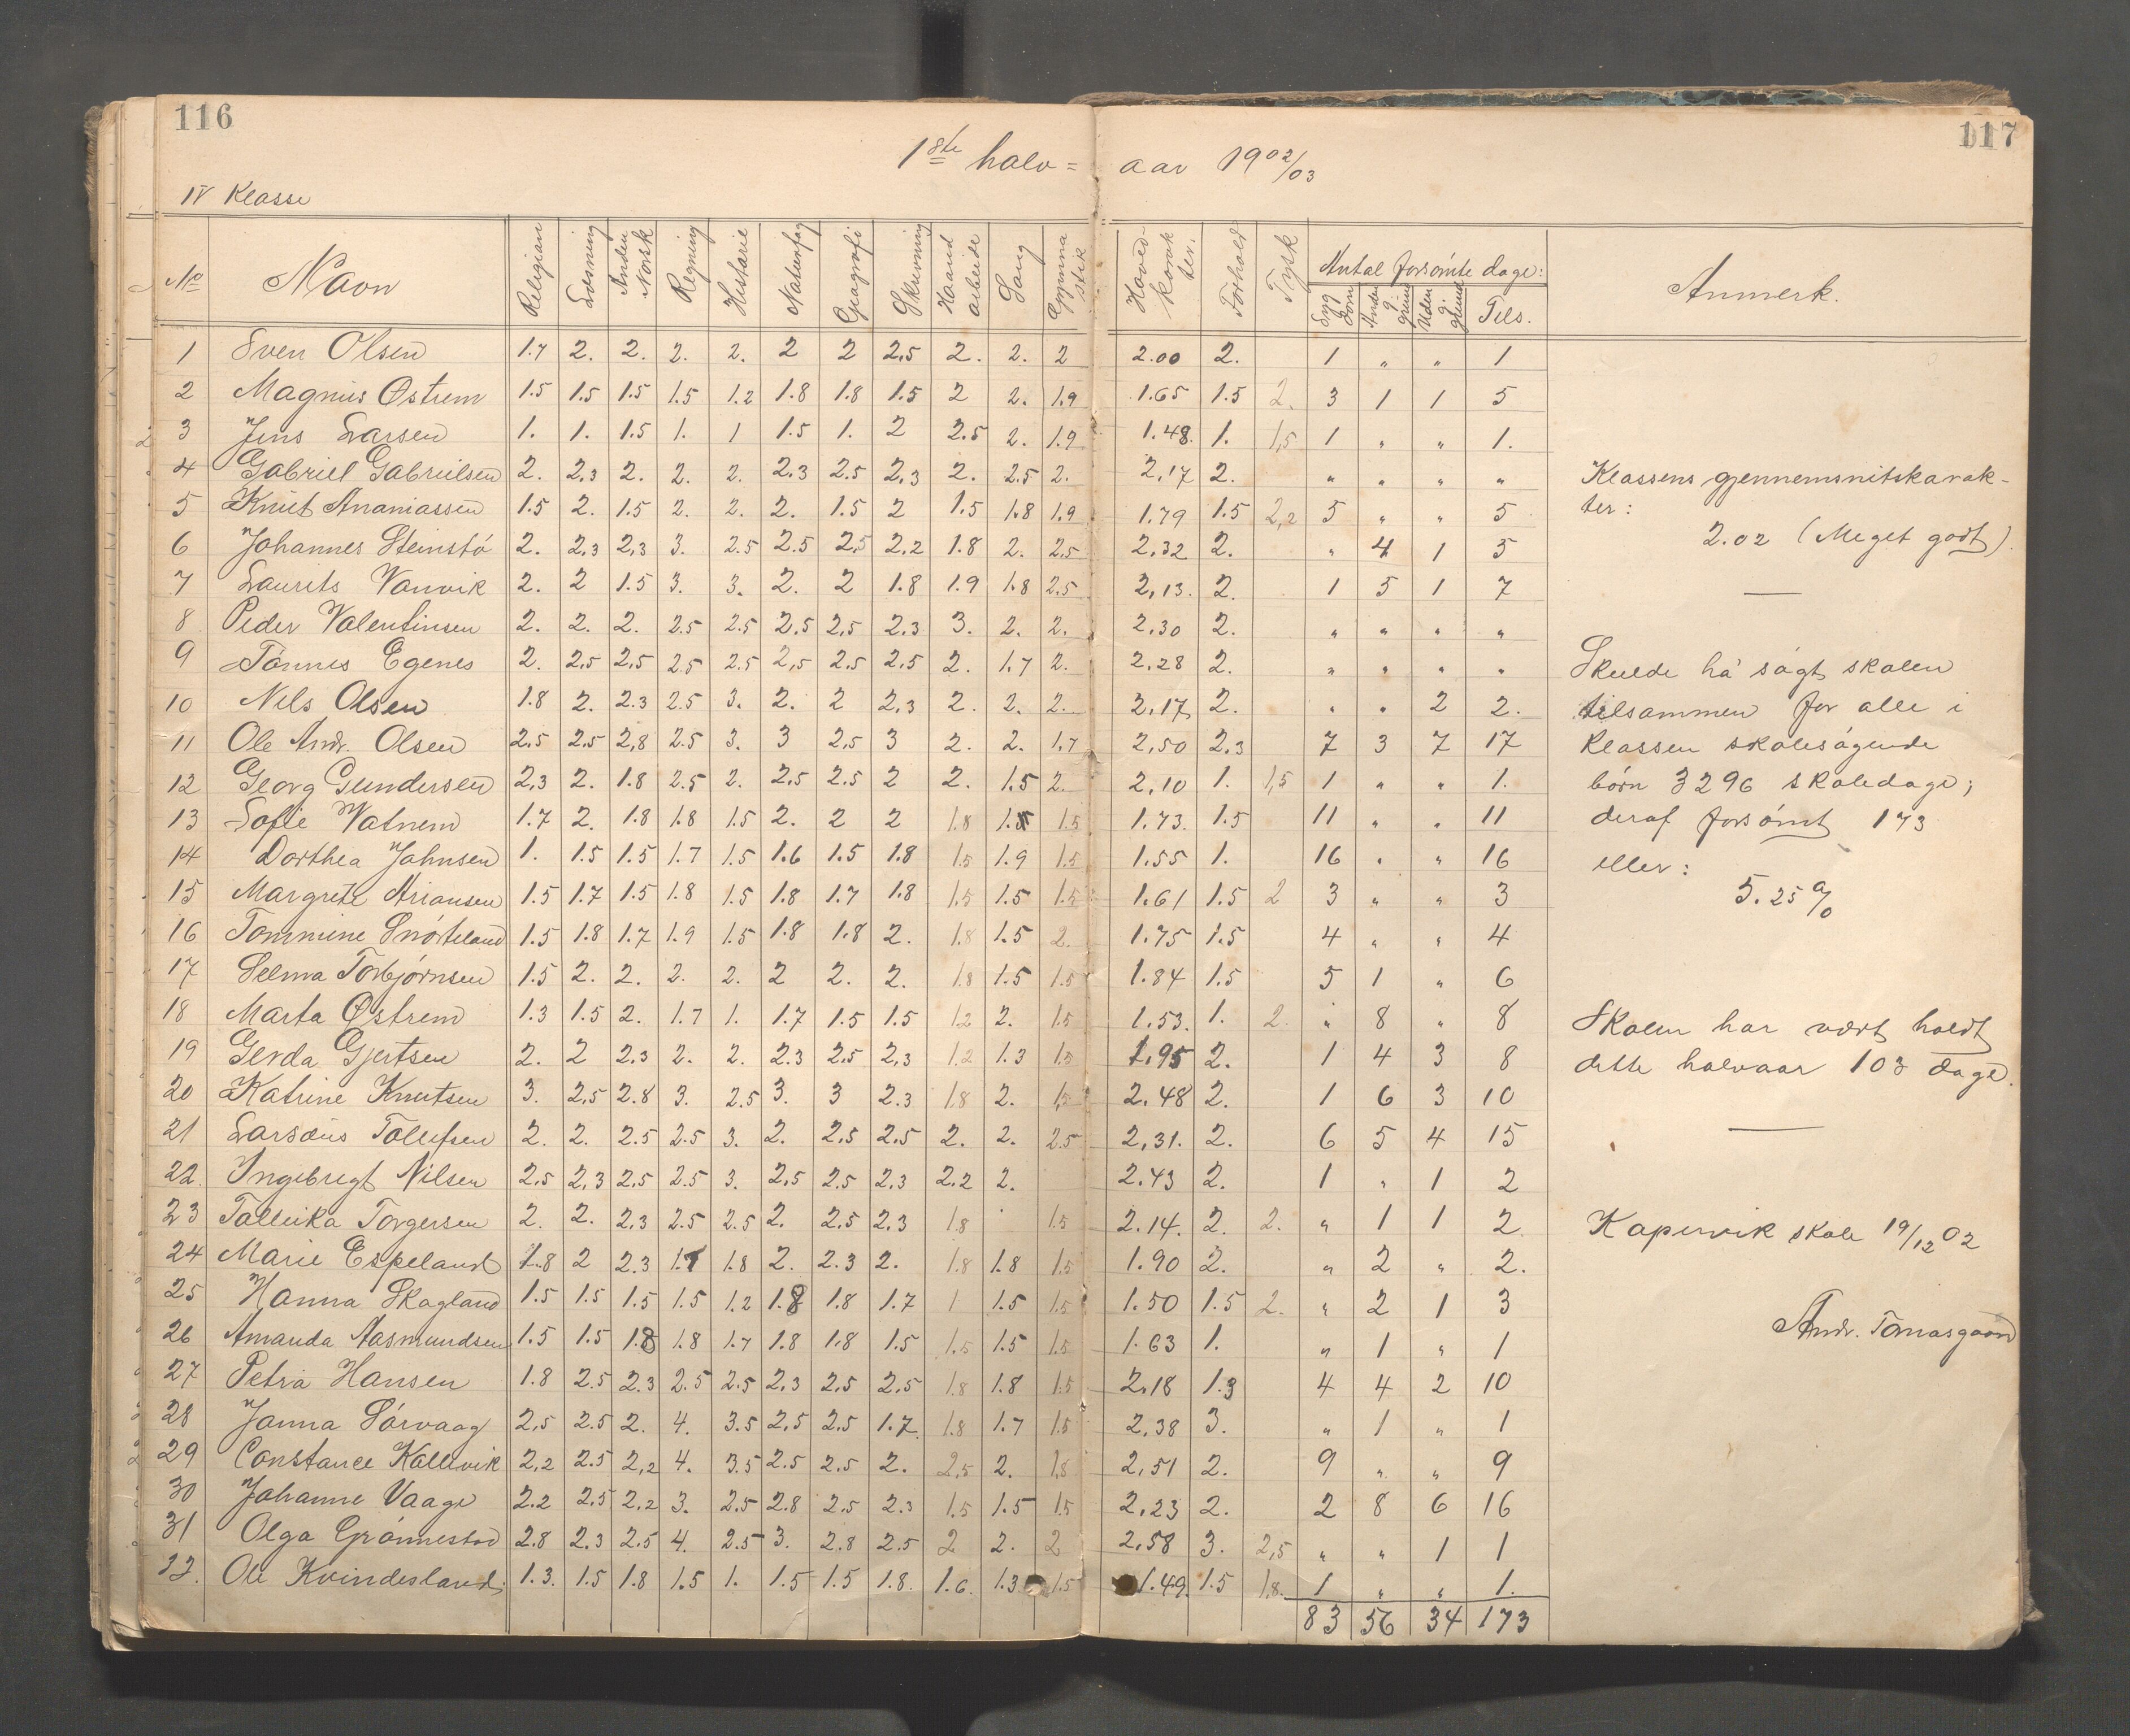 116
117
1ste halv= aar 1902/03
IV Klasse
No Navn Religion Læsning Anden Norsk Regning Historie Naturfag Geografi Skrivning Haandarbeide Sang Gymnastik Hovedkarakter. Forhold Tysk Antal forsømte dage: Sygdom Anden g. grund Uden g. grund Tils. Anmerk.
1 Sven Olsen 1.7 2. 2. 2. 2. 2 2 2,5 2. 2. 2 2.00 2. 1 " " 1
2 Magnus Østrem 1.5 1.5 1.5 1.5 1.2 1.8 1.8 1.5 2 2. 1.9 1.65 1.5 2. 3 1 1 5
3 Jens Larsen 1. 1. 1.5 1. 1 1.5 1. 2 2.5 2. 1.9 1.48. 1. 1,5 1 " " 1.
4 Gabriel Gabrielsen 2. 2,3 2. 2. 2. 2.3 2.5 2,3 2. 2.5 2. 2,17 2. " " " "
5 Knut Ananiassen 1.5 2. 1.5 2. 2. 2. 1.5 2 1.5 1.8 1.9 1.79 1.5 2,2 5 " " 5
6 Johannes Steinstö 2. 2,3 2,3 3. 2.5 2.5 2,5 2,2 1.8 2. 2,5 2,32 2. " 4 1 5
7 Laurits Vanvik 2. 2 1.5 3. 3. 2. 2 1.8 1.9 1.8 2.5 2,13. 2. 1 5 1 7
8 Peder Valentinsen 2. 2. 2. 2.5 2.5 2,5 2,5 2.3 3. 2. 2. 2,30 2. " " " "
9 Tönnes Egenes 2. 2,5 2,5 2.5 2.5 2,5 2.5 2,5 2. 1.7 2. 2,28 2. " " " "
10 Nils Olsen 1.8 2. 2.3 2.5 3. 2. 2 2,3 2. 2. 2. 2,17 2. " " 2 2.
11 Ole Andr. Olsen 2,5 2,5 2,8 2.5 3. 3 2,5 3 2. 2. 1,7 2,50 2,3 7 3 7 17
12 Georg Gundersen 2,3 2. 1.8 2.5 2. 2,5 2.5 2 2. 1.5 2. 2,10 1. 1,5 1 " " 1.
13 Sofie Vatnem 1.7 2. 1.8 1.8 1.5 2. 2 2 1.8 1.5 1.5 1.73. 1.5 11 " " 11
14 Dorthea Johnsen 1. 1.5 1.5 1.7 1.5 1.6 1.5 1.8 1.5 1.9 1.5 1.55 1. 16 " " 16
15 Margrete Ariansen 1.5 1.7 1.5 1.8 1.5 1.8 1.7 1.8 1.5 1.5 1.5 1.61 1.5 2 3 " " 3
16 Tommine Snörteland 1.5 1.8 1.7 1.9 1.5 1.8 1.8 2. 1.8 1.5 2. 1.75 1.5 4 " " 4
17 Selma Torbjørnsen 1.5 2. 2. 2. 2. 2 2. 2. 1.8 1.5 1.5 1.84 1.5 5 1 " 6
18 Marta Østrem 1.3 1.5 2. 1.7 1. 1.7 1.5 1.5 1.2 2. 1.5 1.53. 1. 2. " 8 " 8
19 Gerda Gjertsen 2. 2 2.3 2. 2. 2.3 2,5 2,3 1.2 1.3 1.5 1.95 2. 1 4 3 8
20 Katrine Knutsen 3. 2,5 2.8 3. 2.5 3. 3 2.3 1.8 2. 1,5 2.48 2. 1 6 3 10
21 Larsæus Tollefsen 2. 2. 2.5 2.5 3. 2. 2,5 2,5 2. 2. 2.5 2,31. 2. 6 5 4 15
22. Ingebregt Nilsen 2,5 2,3 2,5 2.5 3. 2,5 2.5 2,3 2.2 2. 2.43 2. 1 " 1 2
23 Talleika Torgersen 2. 2. 2,3 2.5 2.5 2. 2.5 2,3 1.8 1.5 2.14. 2. 2. " 1 1 2
24 Marie Espeland 1.8 2 2.3 1.7 1.8 2. 2.3 2. 1.8 1.8 1.5 1.90 2. " 2 " 2.
25 Hanna Skagland 1.5 1.5 1.5 1.5 1.2 1.8 1.8 1.7 1 1.5 1.5 1.50 1.5 2. " 2 1 3
26 Amanda Aasmundsen 1.5 1.5 1.8 1.8 1.7 1.8 1.8 1.5 1.5 1.5 1.5 1.63 1. " 1 " 1
27 Petra Hansen 1.8 2.5 2.3 2.5 2.5 2,3 2,5 2,5 1.8 1.8 1.5 2.18 1.3 4 4 2 10
28 Janna Sörvaag 2,5 2.5 2. 4. 3.5 2,5 2,5 1.7 1.8 1.7 1.5 2,38 3. " 1 " 1
29 Constance Kallevik 2,2 2.5 2,2 4. 3.5 2.5 2.5 2. 2,5 2. 1,8 2,51 2. 9 " " 9
30 Johanne Vaage 2.2 2,5 2,2 3. 2.5 2.8 2.5 2.3 1.5 1.5 1.5 2,23 2. 2 8 6 16
31 Olga Grönnestad 2.8 2.3 2.5 4. 2.5 3. 2.8 2.5 2 2. 2 2,58 3. 2,5 " " 1 1
32. Ole Kvindesland 1.3. 1.5 1.8 1.5 1. 1.5 1.5 1.8. 1.6. 1.3 1.5 1.49. 1.5 1.8. 1 " " 1.
83 56 34 173
Klassens gjennemsnitskarak-
ter:
2.02 (Meget godt).
Skulde ha' søgt skolen
tilsammen for alle i
klassen skolesøgende
børn 3296 skoledage;
deraf forsømt 173
eller:
5.25 %
Skolen har vært holdt
dette halvaar 103 dage.
Kopervik skole 19/12 02
Andr. Tomasgaard